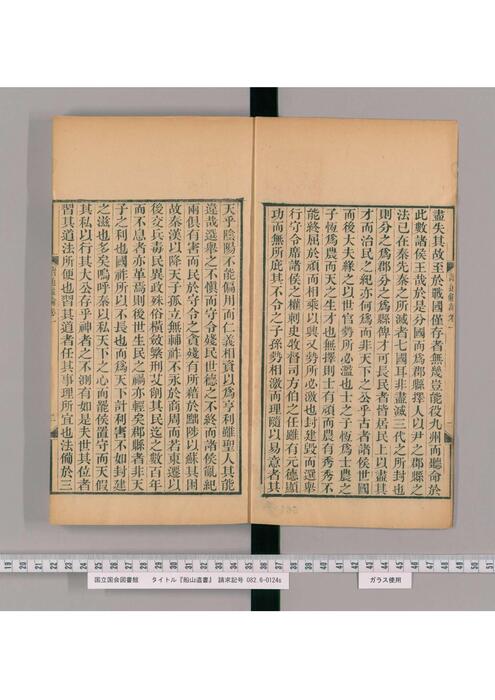 盡失其故至於戰國僅存者無幾豈能役九州而聽命於
此數諸侯王哉於是分國而爲郡縣擇人以尹之郡縣之
法已在秦先秦之所滅者七國耳非盡滅三代之所封也
則分之爲郡分之爲縣俾才可長民者皆居民上以盡其
才而治民之紀亦何爲而非天下之公乎古者諸侯世國
而後大夫緣之以世官勢所必濫也士之子恆爲士農之
子恆爲農而天之生才也無擇則士有頑而農有秀秀不
能終屈於頑而相乘以興又勢所必激也封建毀而選舉
行守令席諸侯之權刺史牧督司方伯之任雖有元德顯
功而無所庇其不令之子孫勢相激而理隨以易意者其
天乎陰陽不能偏用而仁義相資以爲亨利雖聖人其能
違哉選舉之不慎而守令殘民世德之不終而諸侯亂紀
兩俱有害而民於守令之貪殘有所藉於黜陟以蘇其困
故秦漢以降天子孤立無輔祚不永於商周而若東遷以
後交兵毒民異政殊俗橫斂繁刑艾削其民迄之數百年
而不息者亦革焉則後世生民之禍亦輕矣郡縣者非天
子之利也國祚所以不長也而爲天下計利害不如封建
之滋也多矣嗚呼秦以私天下之心而罷侯置守而天假
其私以行其大公存乎神者之不測有如是夫世其位者
習其道法所便也習其道者任其事理所宜也法備於三
19 20 21 22 23 24 25 26 27 28 29 30 31 32 33 34 35 36 37 38 39 40 41 42 43 44 45 46 47 48 49 50 51
国立国会図書館 タイトル『船山遺書』 請求記号 082.6-0124s
ガラス使用